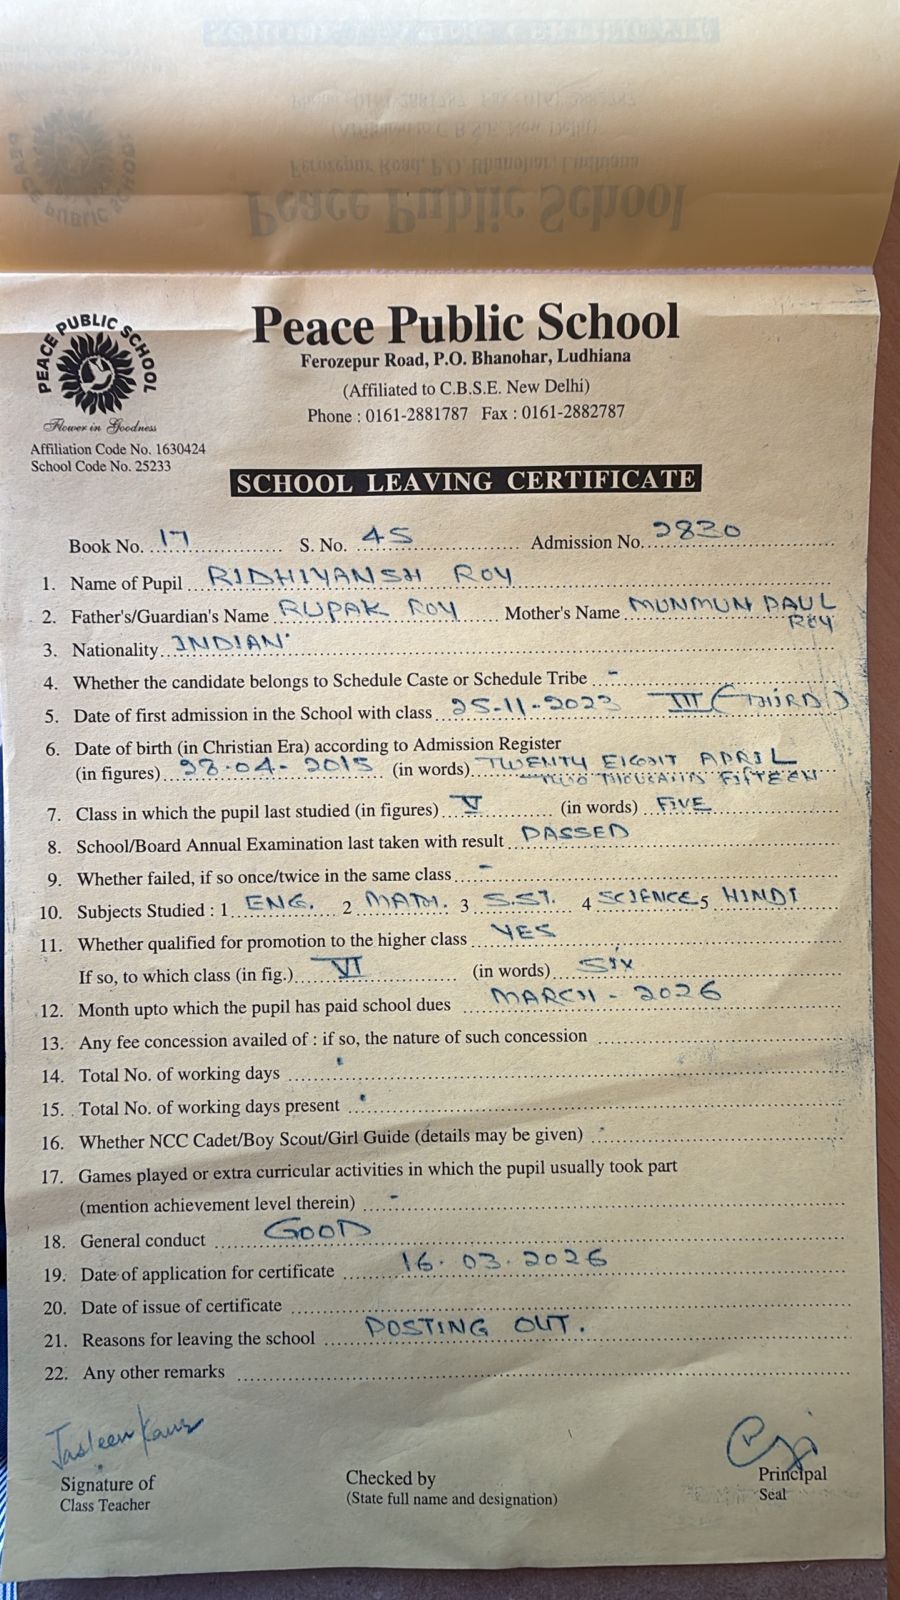 Peace Public School
Ferozepur Road, P.O. Bhanohar, Ludhiana
(Affiliated to C.B.S.E. New Delhi)
Phone : 0161-2881787 Fax : 0161-2882787
PEACE PUBLIC SCHOOL
Flower in Goodness
Affiliation Code No. 1630424
School Code No. 25233
SCHOOL LEAVING CERTIFICATE
Book No. 17 S. No. 45 Admission No. 2830
1. Name of Pupil RIDHIYANSH ROY
2. Father's/Guardian's Name RUPAK ROY Mother's Name MUNMUN PAUL ROY
3. Nationality INDIAN
4. Whether the candidate belongs to Schedule Caste or Schedule Tribe -
5. Date of first admission in the School with class 25-11-2023 III (THIRD)
6. Date of birth (in Christian Era) according to Admission Register
(in figures) 28-04-2015 (in words) TWENTY EIGHT APRIL
TWO THOUSAND FIFTEEN
7. Class in which the pupil last studied (in figures) V (in words) FIVE
8. School/Board Annual Examination last taken with result PASSED
9. Whether failed, if so once/twice in the same class -
10. Subjects Studied : 1 ENG. 2 MATH. 3 S.ST. 4 SCIENCE 5 HINDI
11. Whether qualified for promotion to the higher class YES
If so, to which class (in fig.) VI (in words) SIX
12. Month upto which the pupil has paid school dues MARCH - 2026
13. Any fee concession availed of : if so, the nature of such concession
14. Total No. of working days
15. Total No. of working days present
16. Whether NCC Cadet/Boy Scout/Girl Guide (details may be given) -
17. Games played or extra curricular activities in which the pupil usually took part
(mention achievement level therein) -
18. General conduct GOOD
19. Date of application for certificate 16.03.2026
20. Date of issue of certificate
21. Reasons for leaving the school POSTING OUT.
22. Any other remarks
Jasleen Kaur
Signature of
Class Teacher
Checked by
(State full name and designation)
Principal
Seal